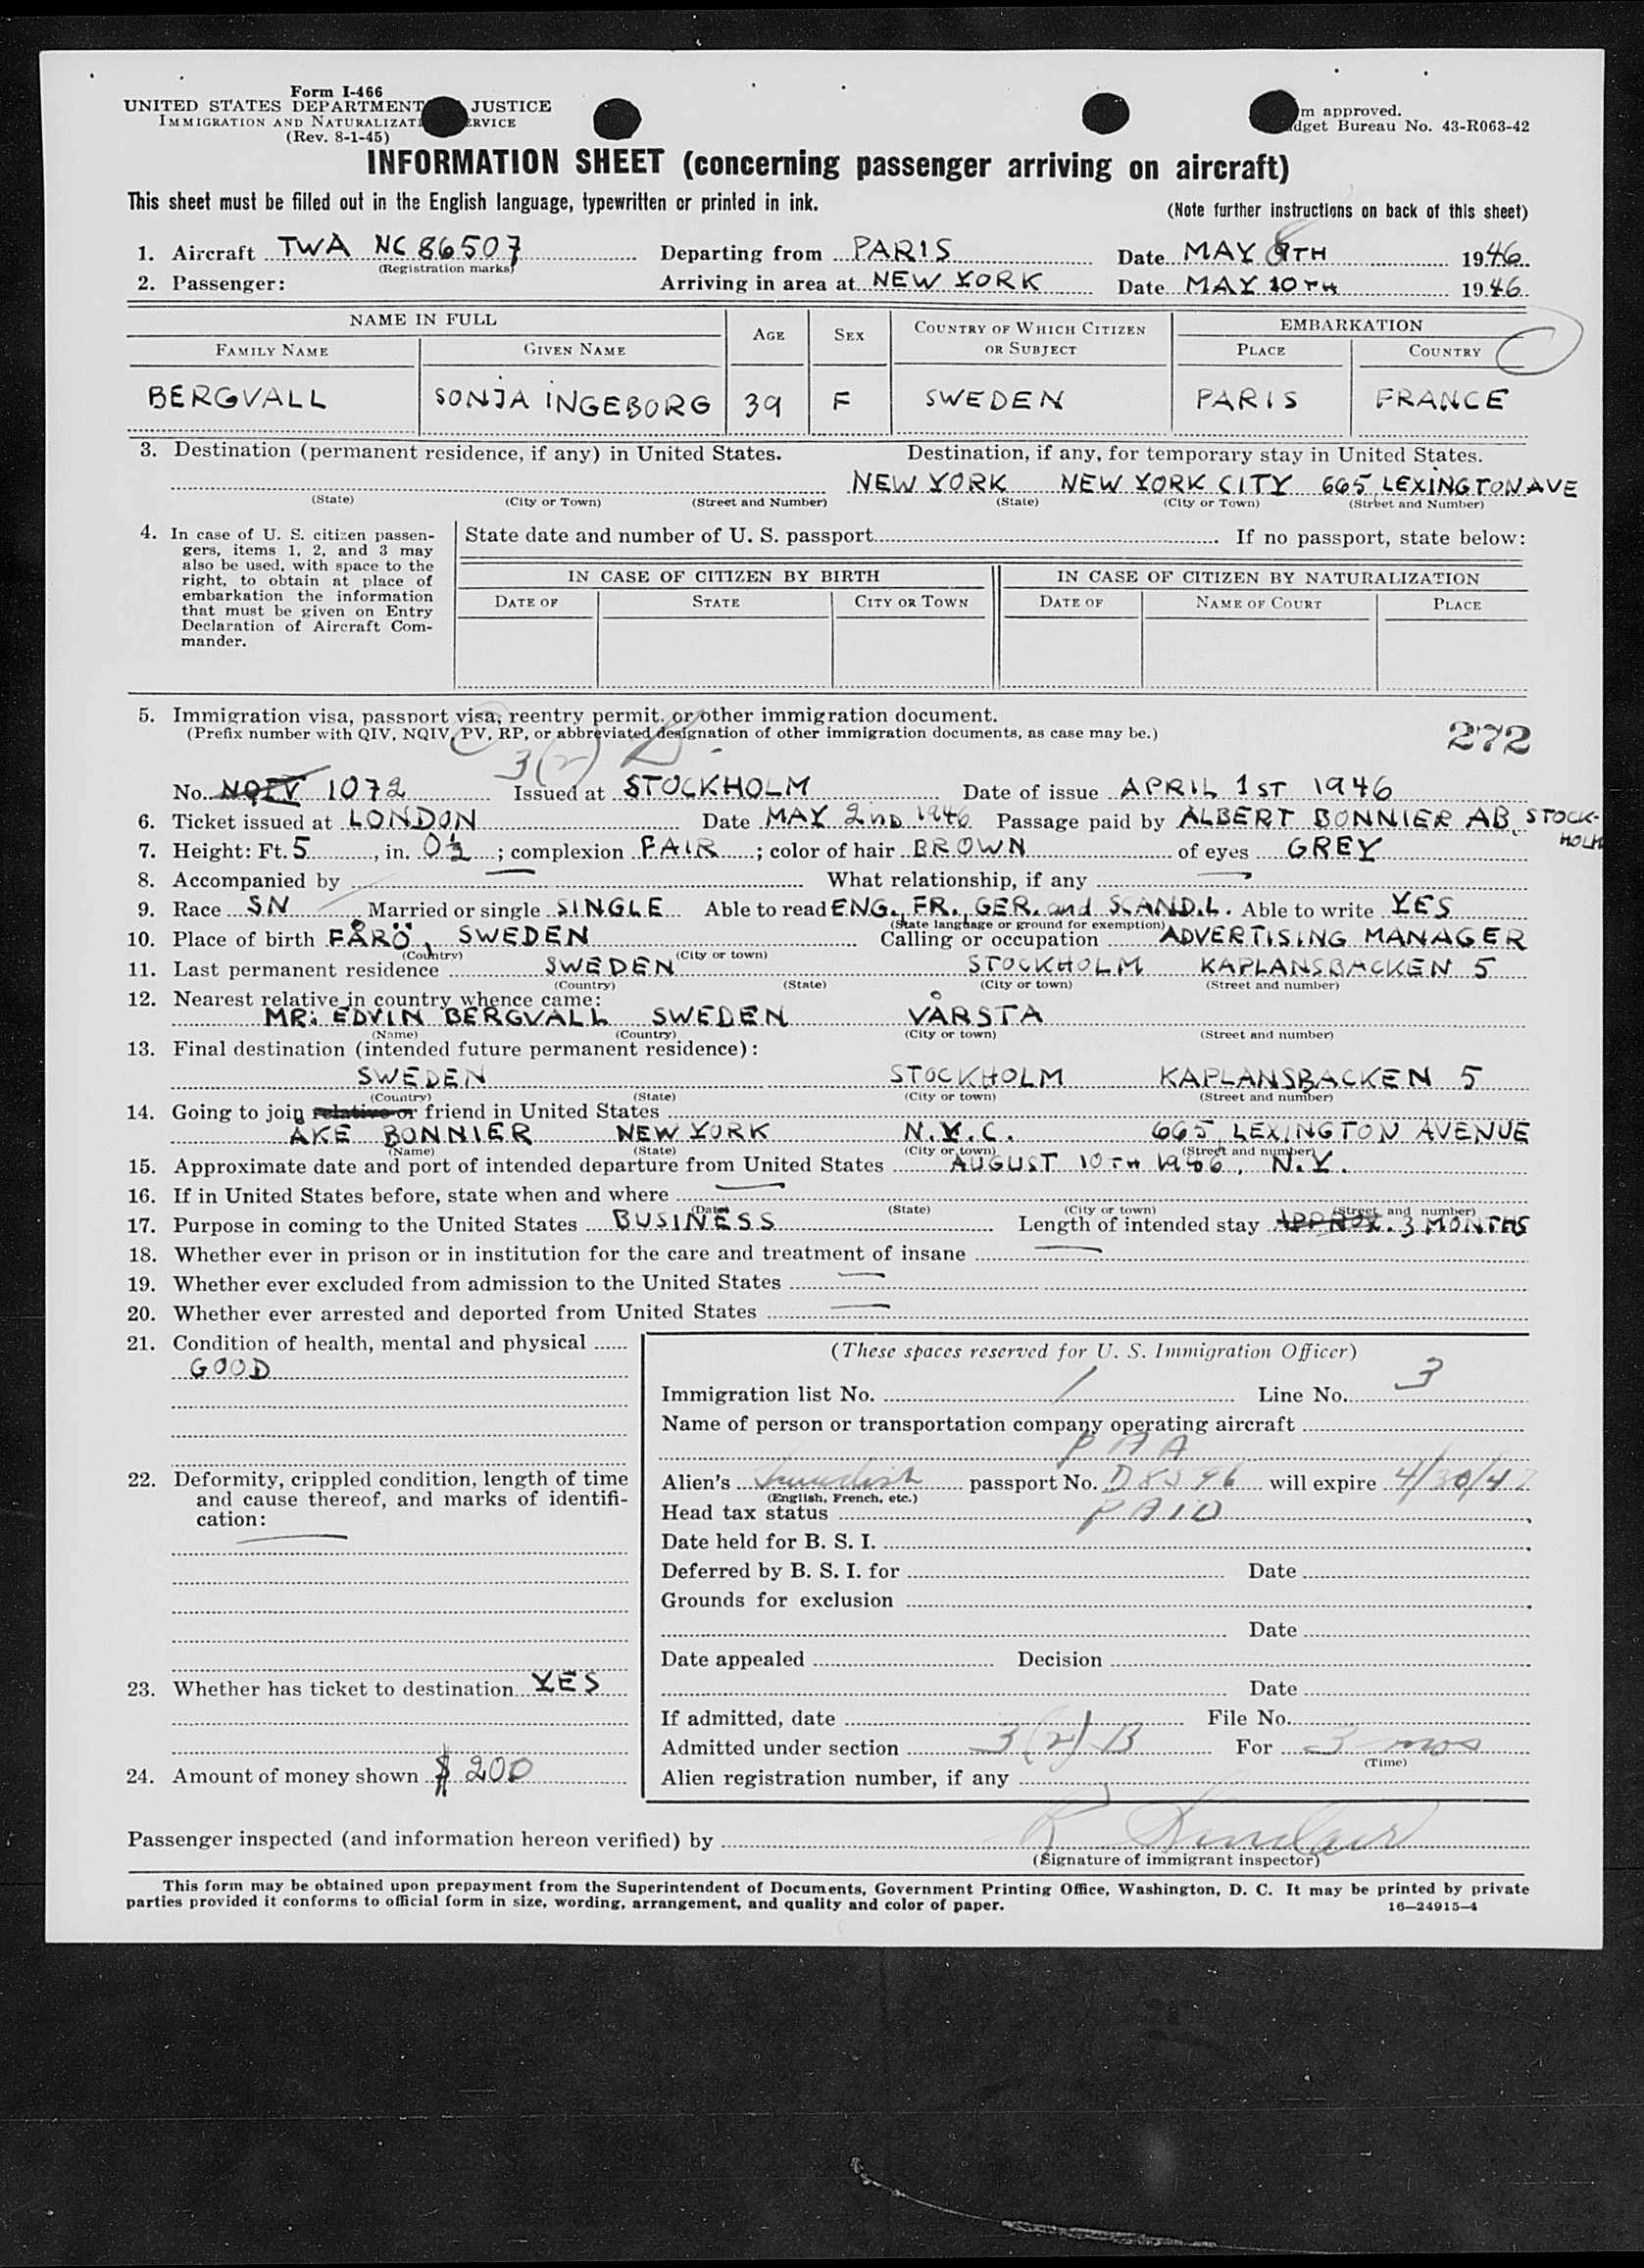 Form I-466
UNITED STATES DEPARTMENT JUSTICE
IMMIGRATION AND NATURALIZATI RVICE
(Rev. 8-1-45)
m approved.
dget Bureau No. 43-R063-42
INFORMATION SHEET (concerning passenger arriving on aircraft)
This sheet must be filled out in the English language, typewritten or printed in ink.
(Note further instructions on back of this sheet)
1. Aircraft TWA NC 86507 Departing from PARIS Date MAY 8TH 1946
(Registration marks)
2. Passenger: Arriving in area at NEW YORK Date MAY 10TH 1946
NAME IN FULL AGE SEX COUNTRY OF WHICH CITIZEN OR SUBJECT EMBARKATION
FAMILY NAME GIVEN NAME PLACE COUNTRY
BERGVALL SONJA INGEBORG 39 F SWEDEN PARIS FRANCE
3. Destination (permanent residence, if any) in United States. Destination, if any, for temporary stay in United States.
NEW YORK NEW YORK CITY 665, LEXINGTON AVE
(State) (City or Town) (Street and Number) (State) (City or Town) (Street and Number)
4. In case of U. S. citizen passengers, items 1, 2, and 3 may also be used, with space to the right, to obtain at place of embarkation the information that must be given on Entry Declaration of Aircraft Commander.
State date and number of U. S. passport If no passport, state below:
IN CASE OF CITIZEN BY BIRTH IN CASE OF CITIZEN BY NATURALIZATION
DATE OF STATE CITY OR TOWN DATE OF NAME OF COURT PLACE
5. Immigration visa, passport visa, reentry permit, or other immigration document.
(Prefix number with QIV, NQIV, PV, RP, or abbreviated designation of other immigration documents, as case may be.)
272
3(2) B
No. NQIV 1072 Issued at STOCKHOLM Date of issue APRIL 1ST 1946
6. Ticket issued at LONDON Date MAY 2ND 1946 Passage paid by ALBERT BONNIER AB, STOCK-
HOLM
7. Height: Ft. 5, in. 0½; complexion FAIR; color of hair BROWN of eyes GREY
8. Accompanied by — What relationship, if any —
9. Race SN Married or single SINGLE Able to read ENG., FR., GER. and SCAND.L. Able to write YES
(State language or ground for exemption)
10. Place of birth FÅRÖ, SWEDEN Calling or occupation ADVERTISING MANAGER
(Country) (City or town)
11. Last permanent residence SWEDEN STOCKHOLM KAPLANSBACKEN 5
(Country) (State) (City or town) (Street and number)
12. Nearest relative in country whence came:
MR. EDVIN BERGVALL SWEDEN VÅRSTA
(Name) (Country) (City or town) (Street and number)
13. Final destination (intended future permanent residence):
SWEDEN STOCKHOLM KAPLANSBACKEN 5
(Country) (State) (City or town) (Street and number)
14. Going to join relative or friend in United States
ÅKE BONNIER NEW YORK N.Y.C. 665, LEXINGTON AVENUE
(Name) (State) (City or town) (Street and number)
15. Approximate date and port of intended departure from United States AUGUST 10TH 1946, N.Y.
16. If in United States before, state when and where —
(Date) (State) (City or town) (Street and number)
17. Purpose in coming to the United States BUSINESS Length of intended stay APPROX. 3 MONTHS
18. Whether ever in prison or in institution for the care and treatment of insane —
19. Whether ever excluded from admission to the United States —
20. Whether ever arrested and deported from United States —
21. Condition of health, mental and physical
GOOD
22. Deformity, crippled condition, length of time and cause thereof, and marks of identification:
—
23. Whether has ticket to destination YES
24. Amount of money shown $ 200
(These spaces reserved for U. S. Immigration Officer)
Immigration list No. 1 Line No. 3
Name of person or transportation company operating aircraft
P A A
Alien's Swedish passport No. D8596 will expire 4/30/47
(English, French, etc.)
Head tax status PAID
Date held for B. S. I.
Deferred by B. S. I. for Date
Grounds for exclusion
Date
Date appealed Decision
Date
If admitted, date File No.
Admitted under section 3(2)B For 3 mos
(Time)
Alien registration number, if any
Passenger inspected (and information hereon verified) by R Sinclair
(Signature of immigrant inspector)
This form may be obtained upon prepayment from the Superintendent of Documents, Government Printing Office, Washington, D. C. It may be printed by private
parties provided it conforms to official form in size, wording, arrangement, and quality and color of paper.
16—24915-4